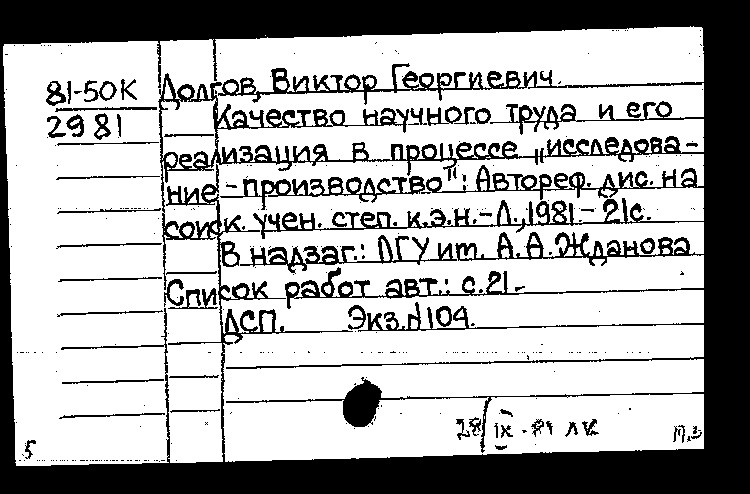 81-50К Долгов, Виктор Георгиевич.
2981 Качество научного труда и его
реализация в процессе „исследова-
ние-производство": Автореф. дис. на
соиск. учен. степ. к.э.н.-Л., 1981.-21с.
В надзаг.: ЛГУ им. А.А.Жданова
Список работ авт.: с.21.
ДСП. Экз.N104.
28/IX-81
5